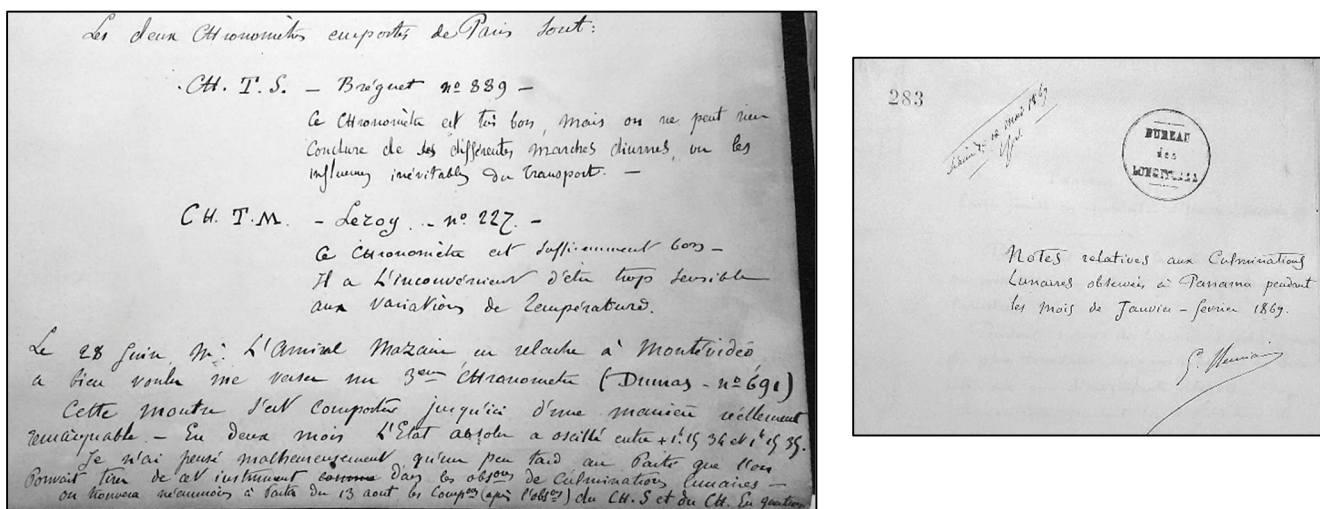 Les deux CHronomètres emportés de Paris sont:
CH. T. S. – Bréguet nº 889 –
Ce CHronomètre est très bon, mais on ne peut rien
Conclure de ses différentes marches diurnes, vu les
influences inévitables du transport. –
CH. T. M. – Leroy – nº 227. –
Ce CHronomètre est suffisamment bon –
Il a L'inconvénient d'être trop sensible
aux variations de Température.
Le 28 Juin, Mr. L'Amiral Mazère en relache à Montévidéo
a bien voulu me verser un 3eme CHronomètre (Dumas - nº 691)
Cette montre s'est comportée jusqu'ici d'une manière réellement
remarquable. – En deux mois L'Etat absolu a oscillé entre + 1h. 15 34 et 1h 15 35.
Je n'ai pensé malheureusement qu'un peu tard au Parti que l'on
Pouvait tirer de cet instrument dans les obsons de Culminations Lunaires –
on trouvera néanmoins à Partir du 13 aout les Compons (après l'obson) du CH. S et du CH. En question
283
mars 1869
BUREAU
des
LONGITUDES
Notes relatives aux Culminations
Lunaires observées à Panama pendant
les mois de Janvier - fevrier 1869.